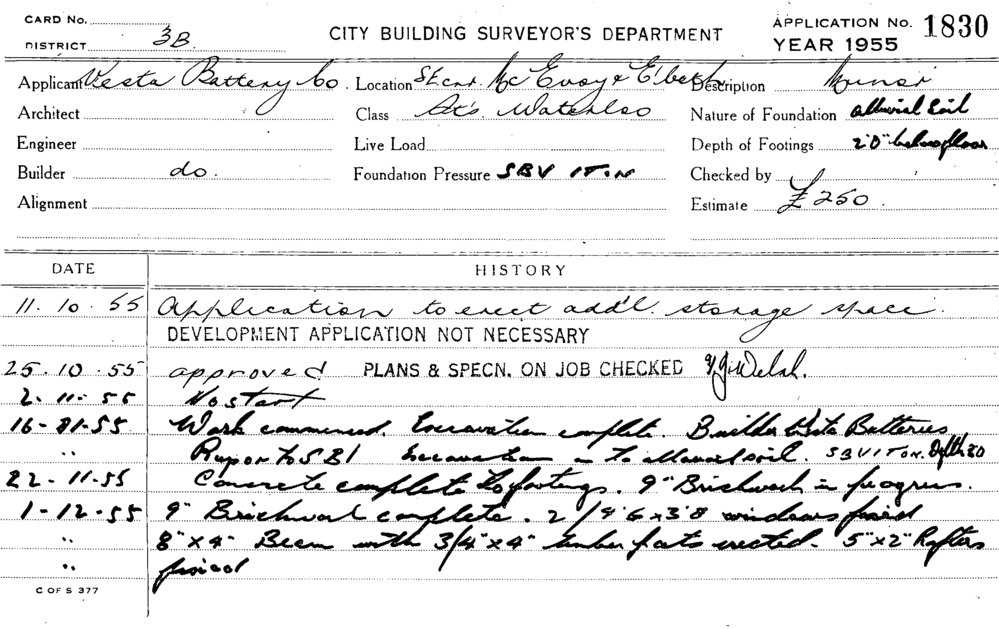 CARD No.
DISTRICT 3B
CITY BUILDING SURVEYOR'S DEPARTMENT
APPLICATION No. 1830
YEAR 1955
Applicant Vesta Battery Co. Location St cnr. McEvoy & Elizabeth Description Minor
Architect Class Sts. Waterloo Nature of Foundation alluvial soil
Engineer Live Load Depth of Footings 2'0" below floor
Builder do. Foundation Pressure SBV 1 TON Checked by
Alignment Estimate £250.
DATE HISTORY
11.10.55 Application to erect add'l. storage space.
DEVELOPMENT APPLICATION NOT NECESSARY
25.10.55 approved PLANS & SPECN. ON JOB CHECKED Welsh.
2-11-55 No start
16- -55 Work commenced. Excavation complete. Builder Batteries
" Report to SBI Excavation in to alluvial soil. SBV 1 TON. Depth
22-11-55 Concrete complete to footings. 9" Brickwork in progress.
1-12-55 9" Brickwork complete. 2/ 9'6 x 3'8 windows fixed
" 8" x 4" Beam with 3/4" x 4" timber posts erected. 5" x 2" Rafters
" fixed
C OF S 377